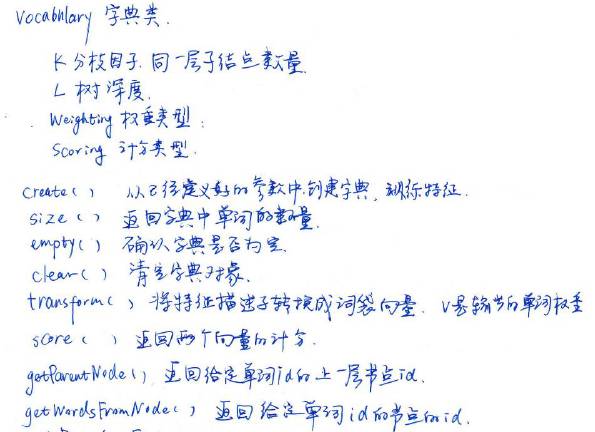 Vocabulary 字典类.
K 分枝因子. 同一层子结点数量.
L 树深度.
Weighting 权重类型.
Scoring 计分类型.
create() 从已经定义好的参数中创建字典, 训练特征.
size() 返回字典中单词的数量.
empty() 确认字典是否为空.
clear() 清空字典对象.
transform() 将特征描述子转换成词袋向量. V是输出的单词权重
score() 返回两个向量的计分.
getParentNode() 返回给定单词id的上一层节点id.
getWordsFromNode() 返回给定单词id的节点的id.